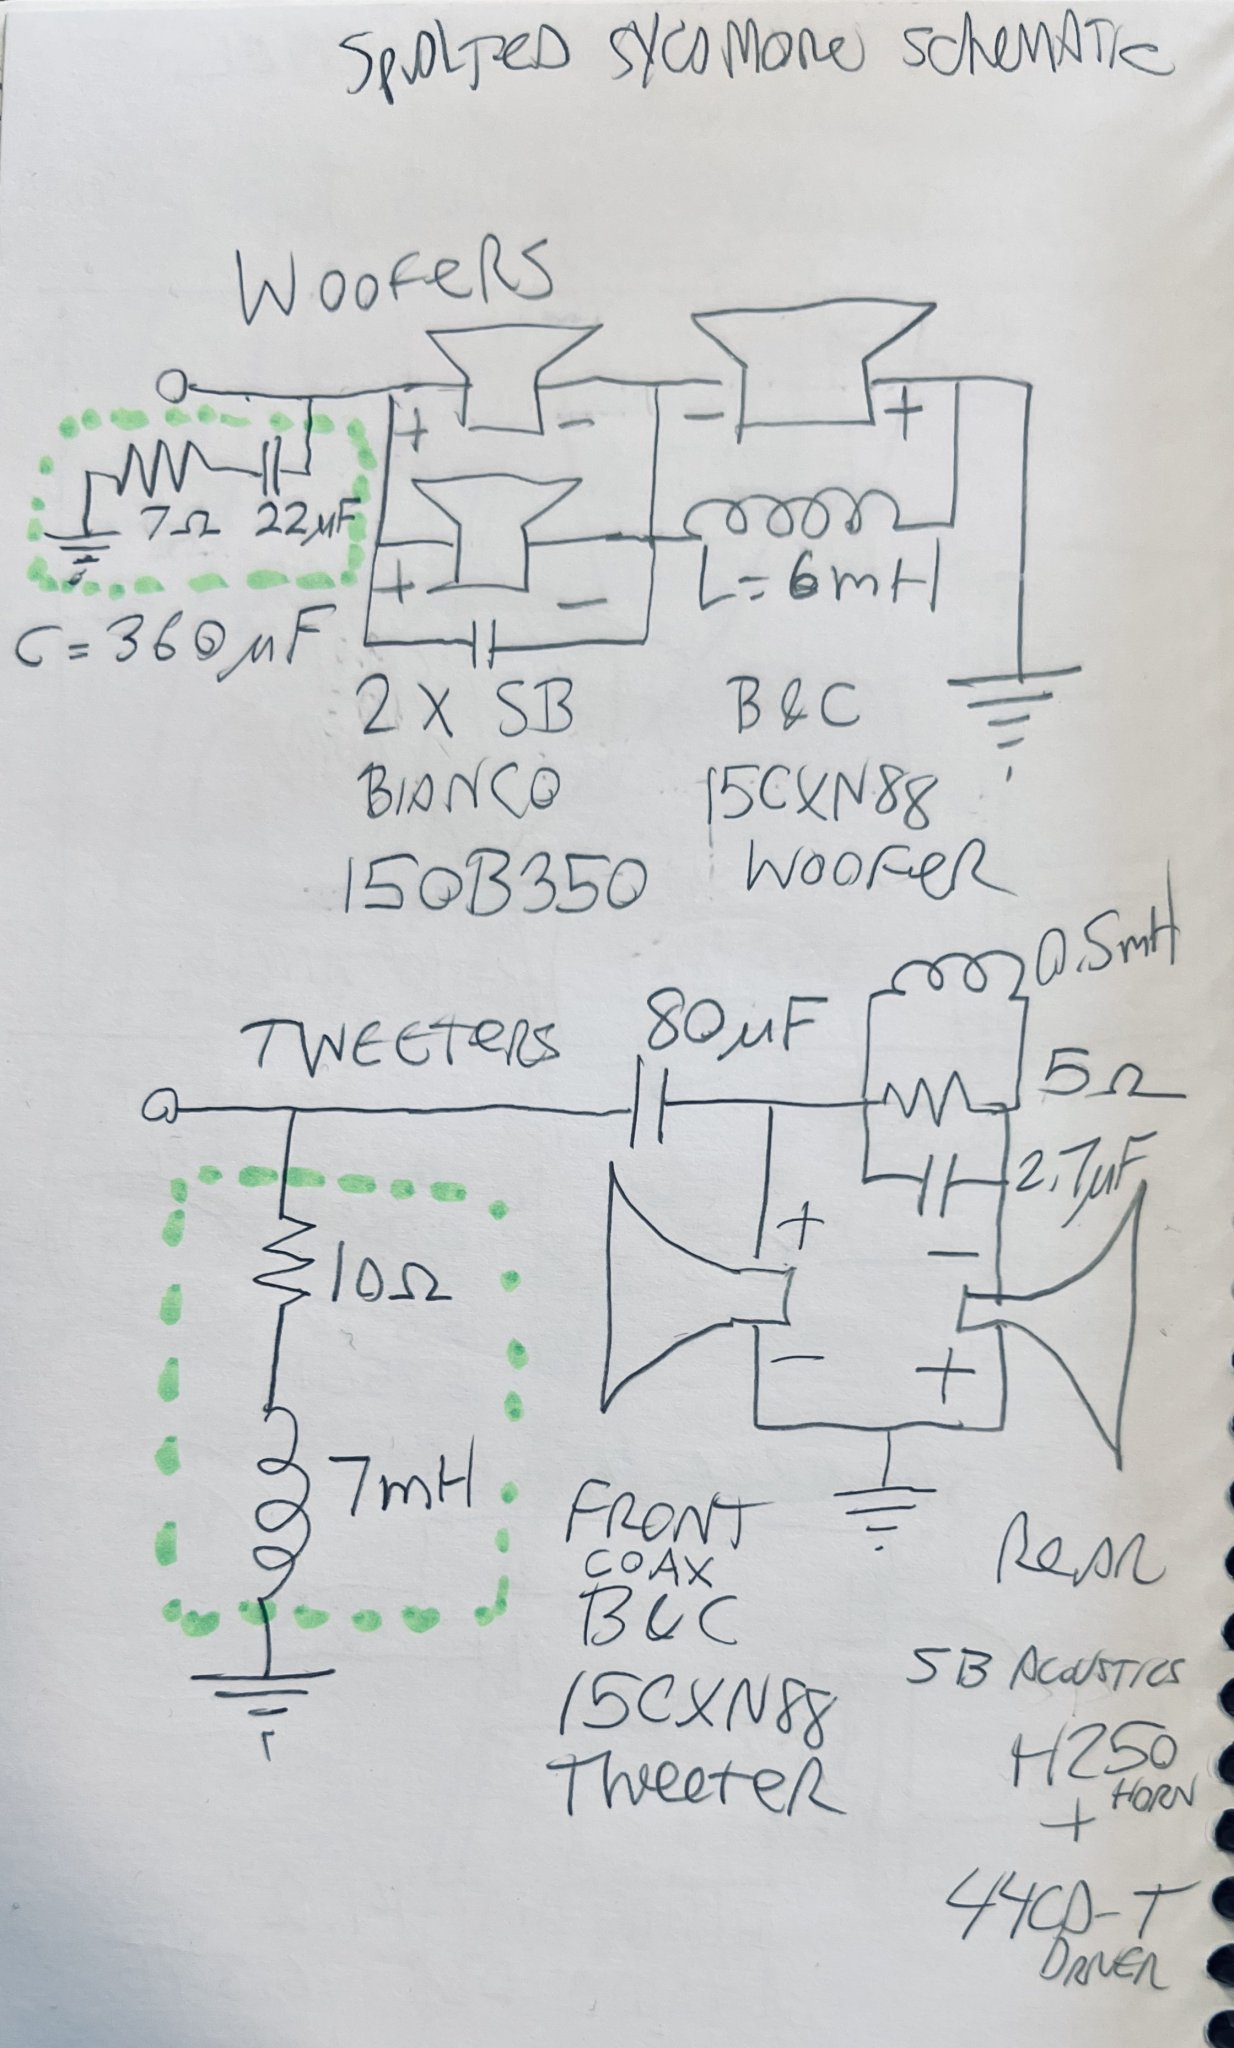 SPALTED SYCAMORE SCHEMATIC
WOOFERS
+ - - +
7Ω 22µF
+ - L=6mH
C=360µF
2 X SB
BIANCO
15OB350
B&C
15CXN88
WOOFER
0.5mH
TWEETERS 80µF
5Ω
2.7µF
+ -
10Ω
- +
7mH
FRONT
COAX
B&C
15CXN88
TWEETER
REAR
SB ACOUSTICS
H250
HORN
+
44CD-T
DRIVER